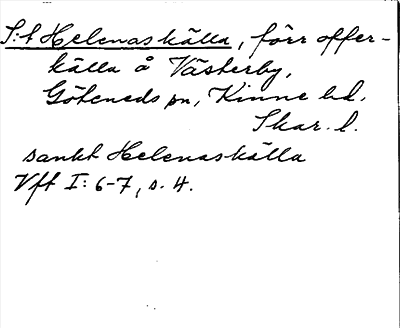 S:t Helenas källa, förr offer-
källa å Västerby,
Göteneds sn, Kinne hd,
Skar. l.
sankt Helenaskälla
Vft I: 6-7, s. 4.